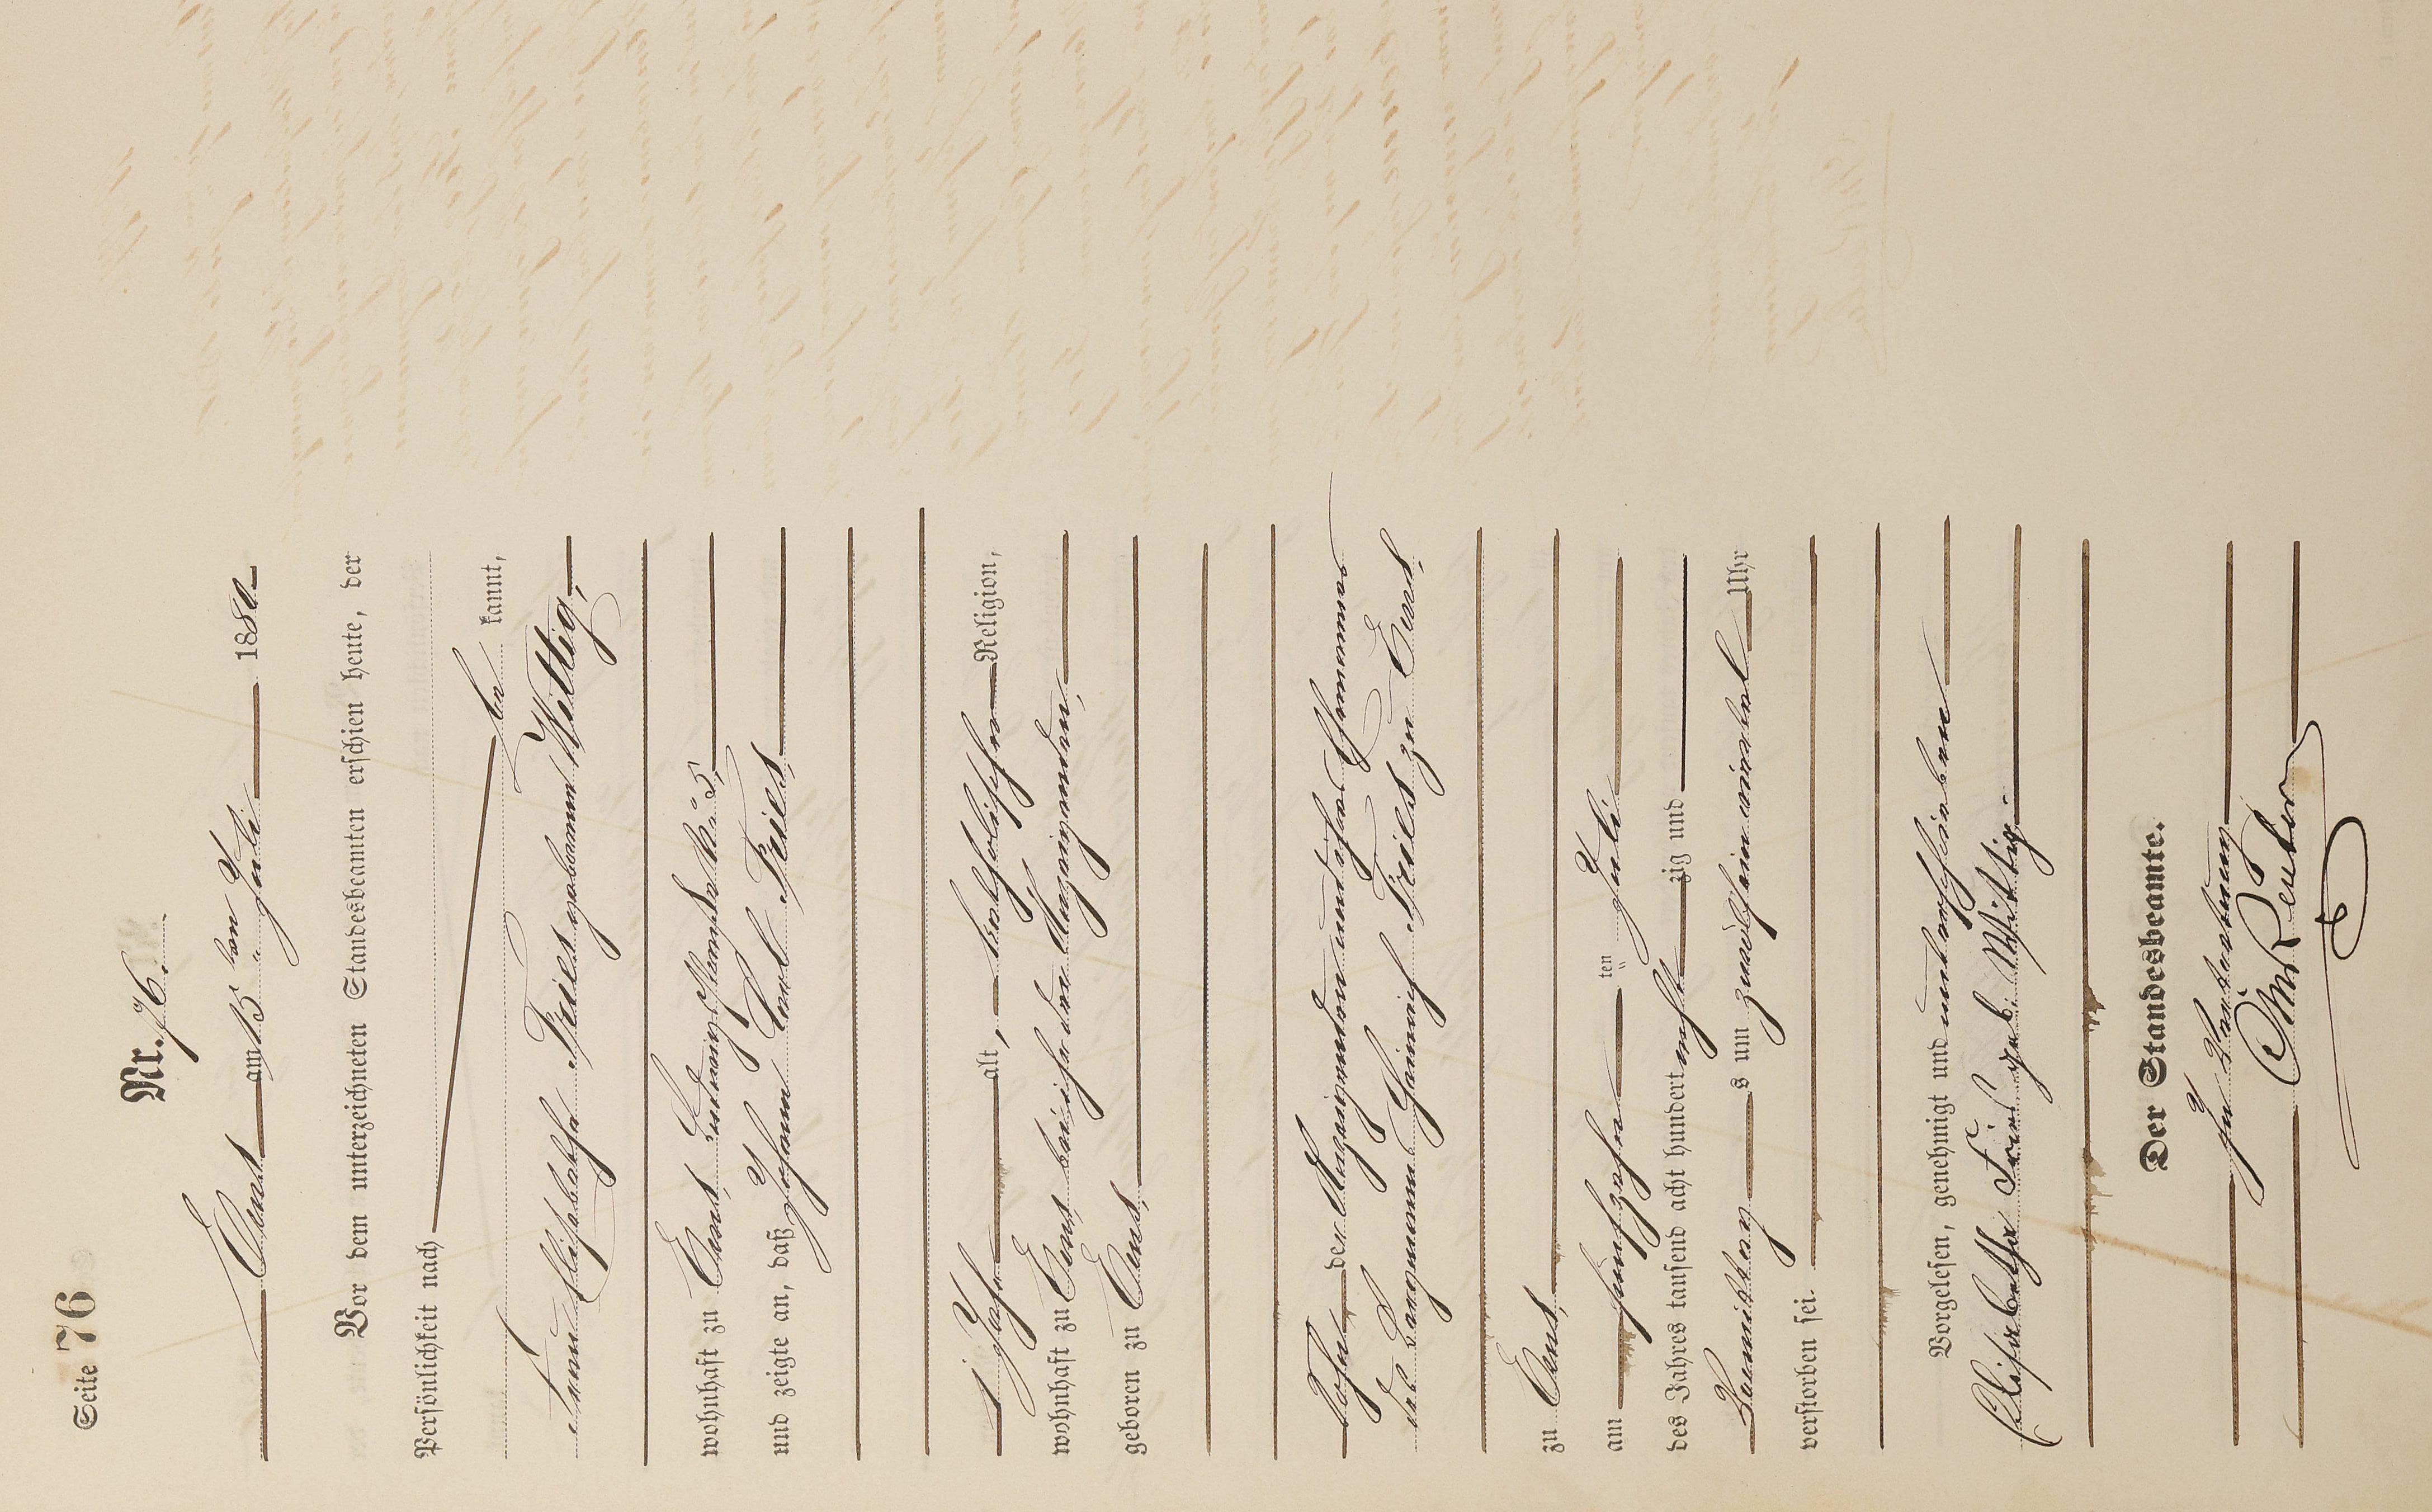 Seite 76
Nr. 76.
Ems am 15ten Juli 1880.
Vor dem unterzeichneten Standesbeamten erschien heute, der
Persönlichkeit nach
be kannt,
Anna Elisabetha Fries geborene Wittig,
wohnhaft zu Ems,
und zeigte an, daß Johann Carl Fries
1 Jahr alt, katholischer Religion,
wohnhaft zu Ems bei ihr der Anzeigenden,
geboren zu Ems,
Sohn der Anzeigenden und ihres Ehemannes
des Bergmann Heinrich Fries zu Ems,
zu Ems,
am fünfzehnten Juli
des Jahres tausend acht hundert achtzig und
Vormittags um zwölf ein viertel Uhr
verstorben sei.
Vorgelesen, genehmigt und unterschrieben
Elisabetha Fries geb. Wittig.
Der Standesbeamte.
In Vertretung
Reuter